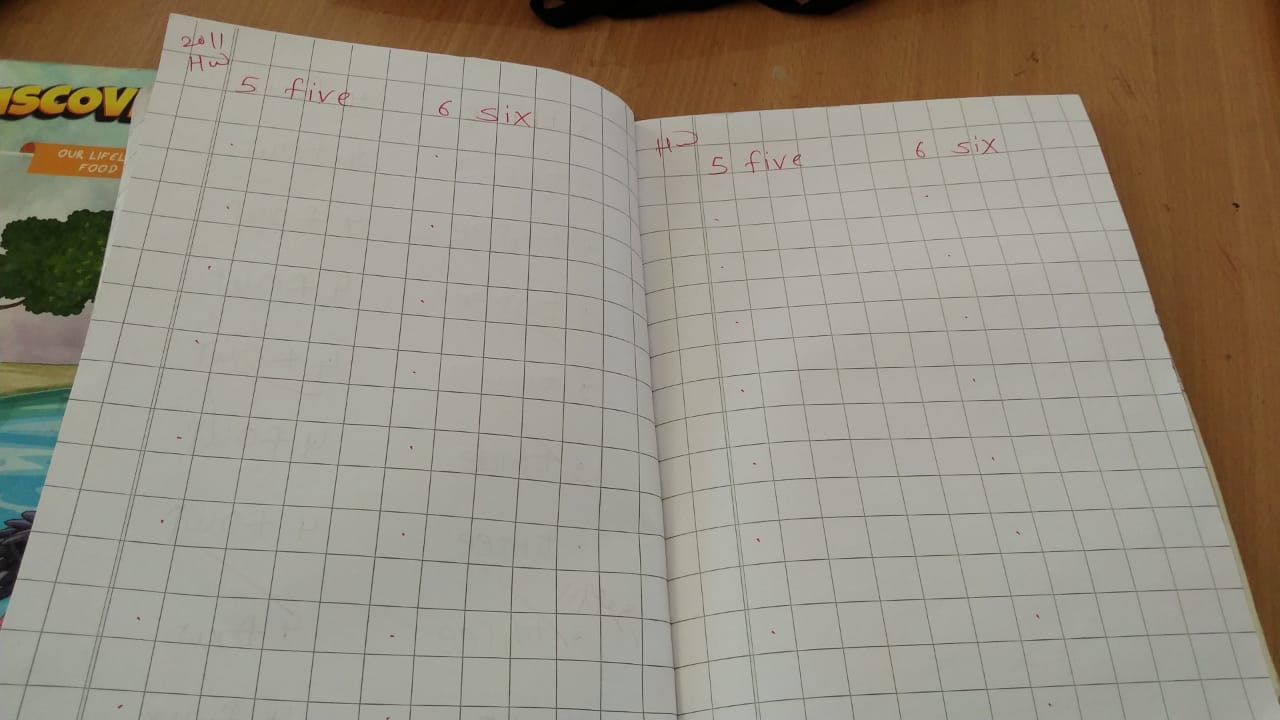 2011
HW
5 five 6 six
HW
5 five 6 six
ISCOV
OUR LIFEL
FOOD